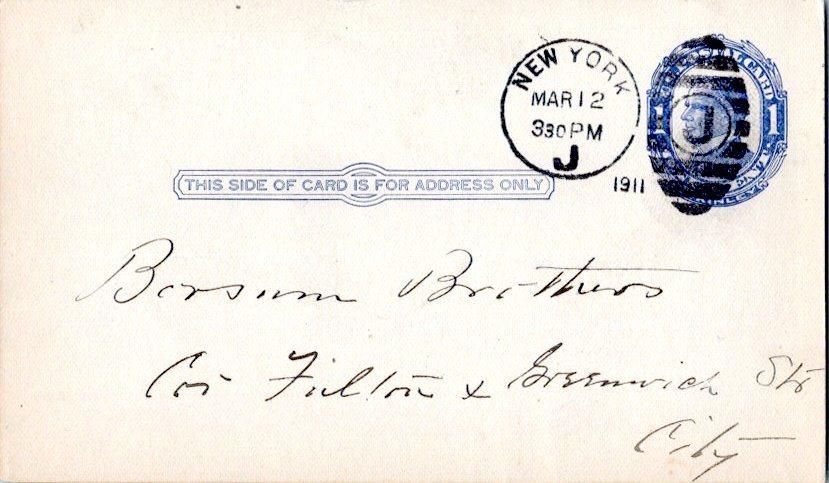 NEW YORK
MAR 12
3 30 PM
J
1911
J
POSTAL CARD
1 1
THIS SIDE OF CARD IS FOR ADDRESS ONLY
Borsum Brothers
Cor Fulton & Greenwich Sts
City